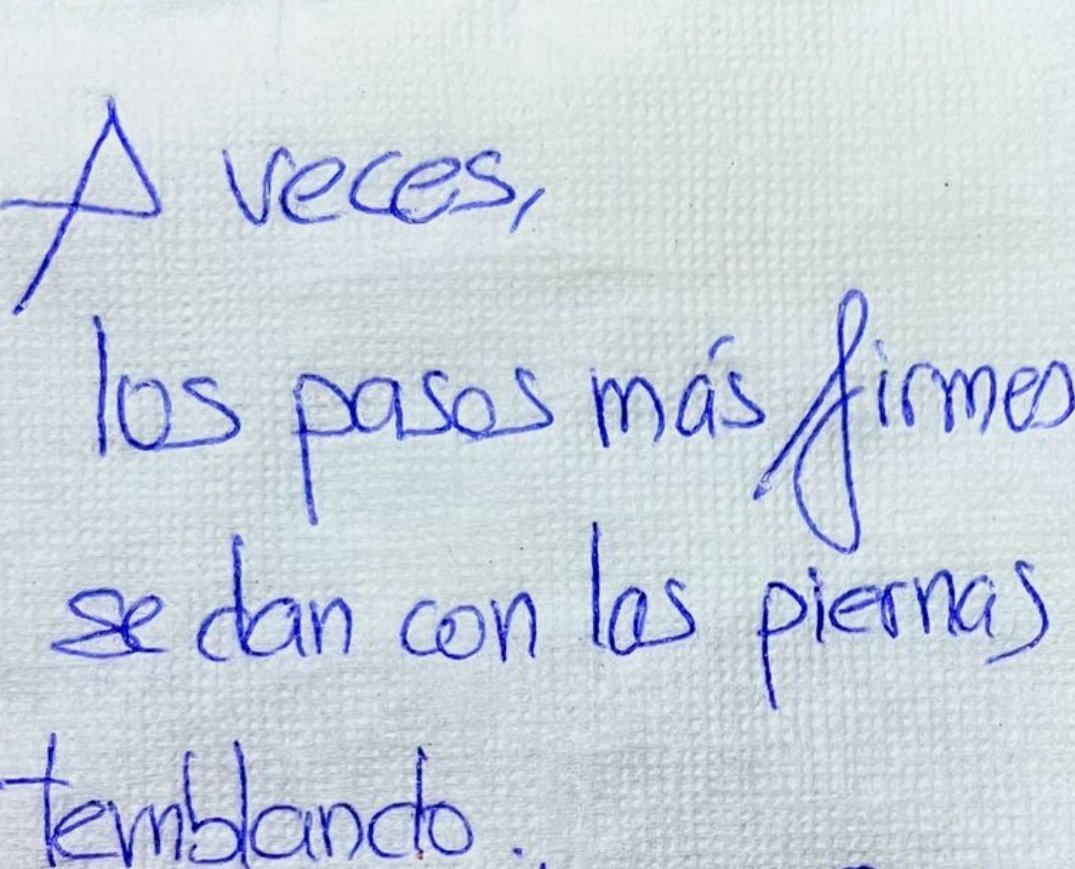 A veces,
los pasos más firmes
se dan con las piernas
temblando.